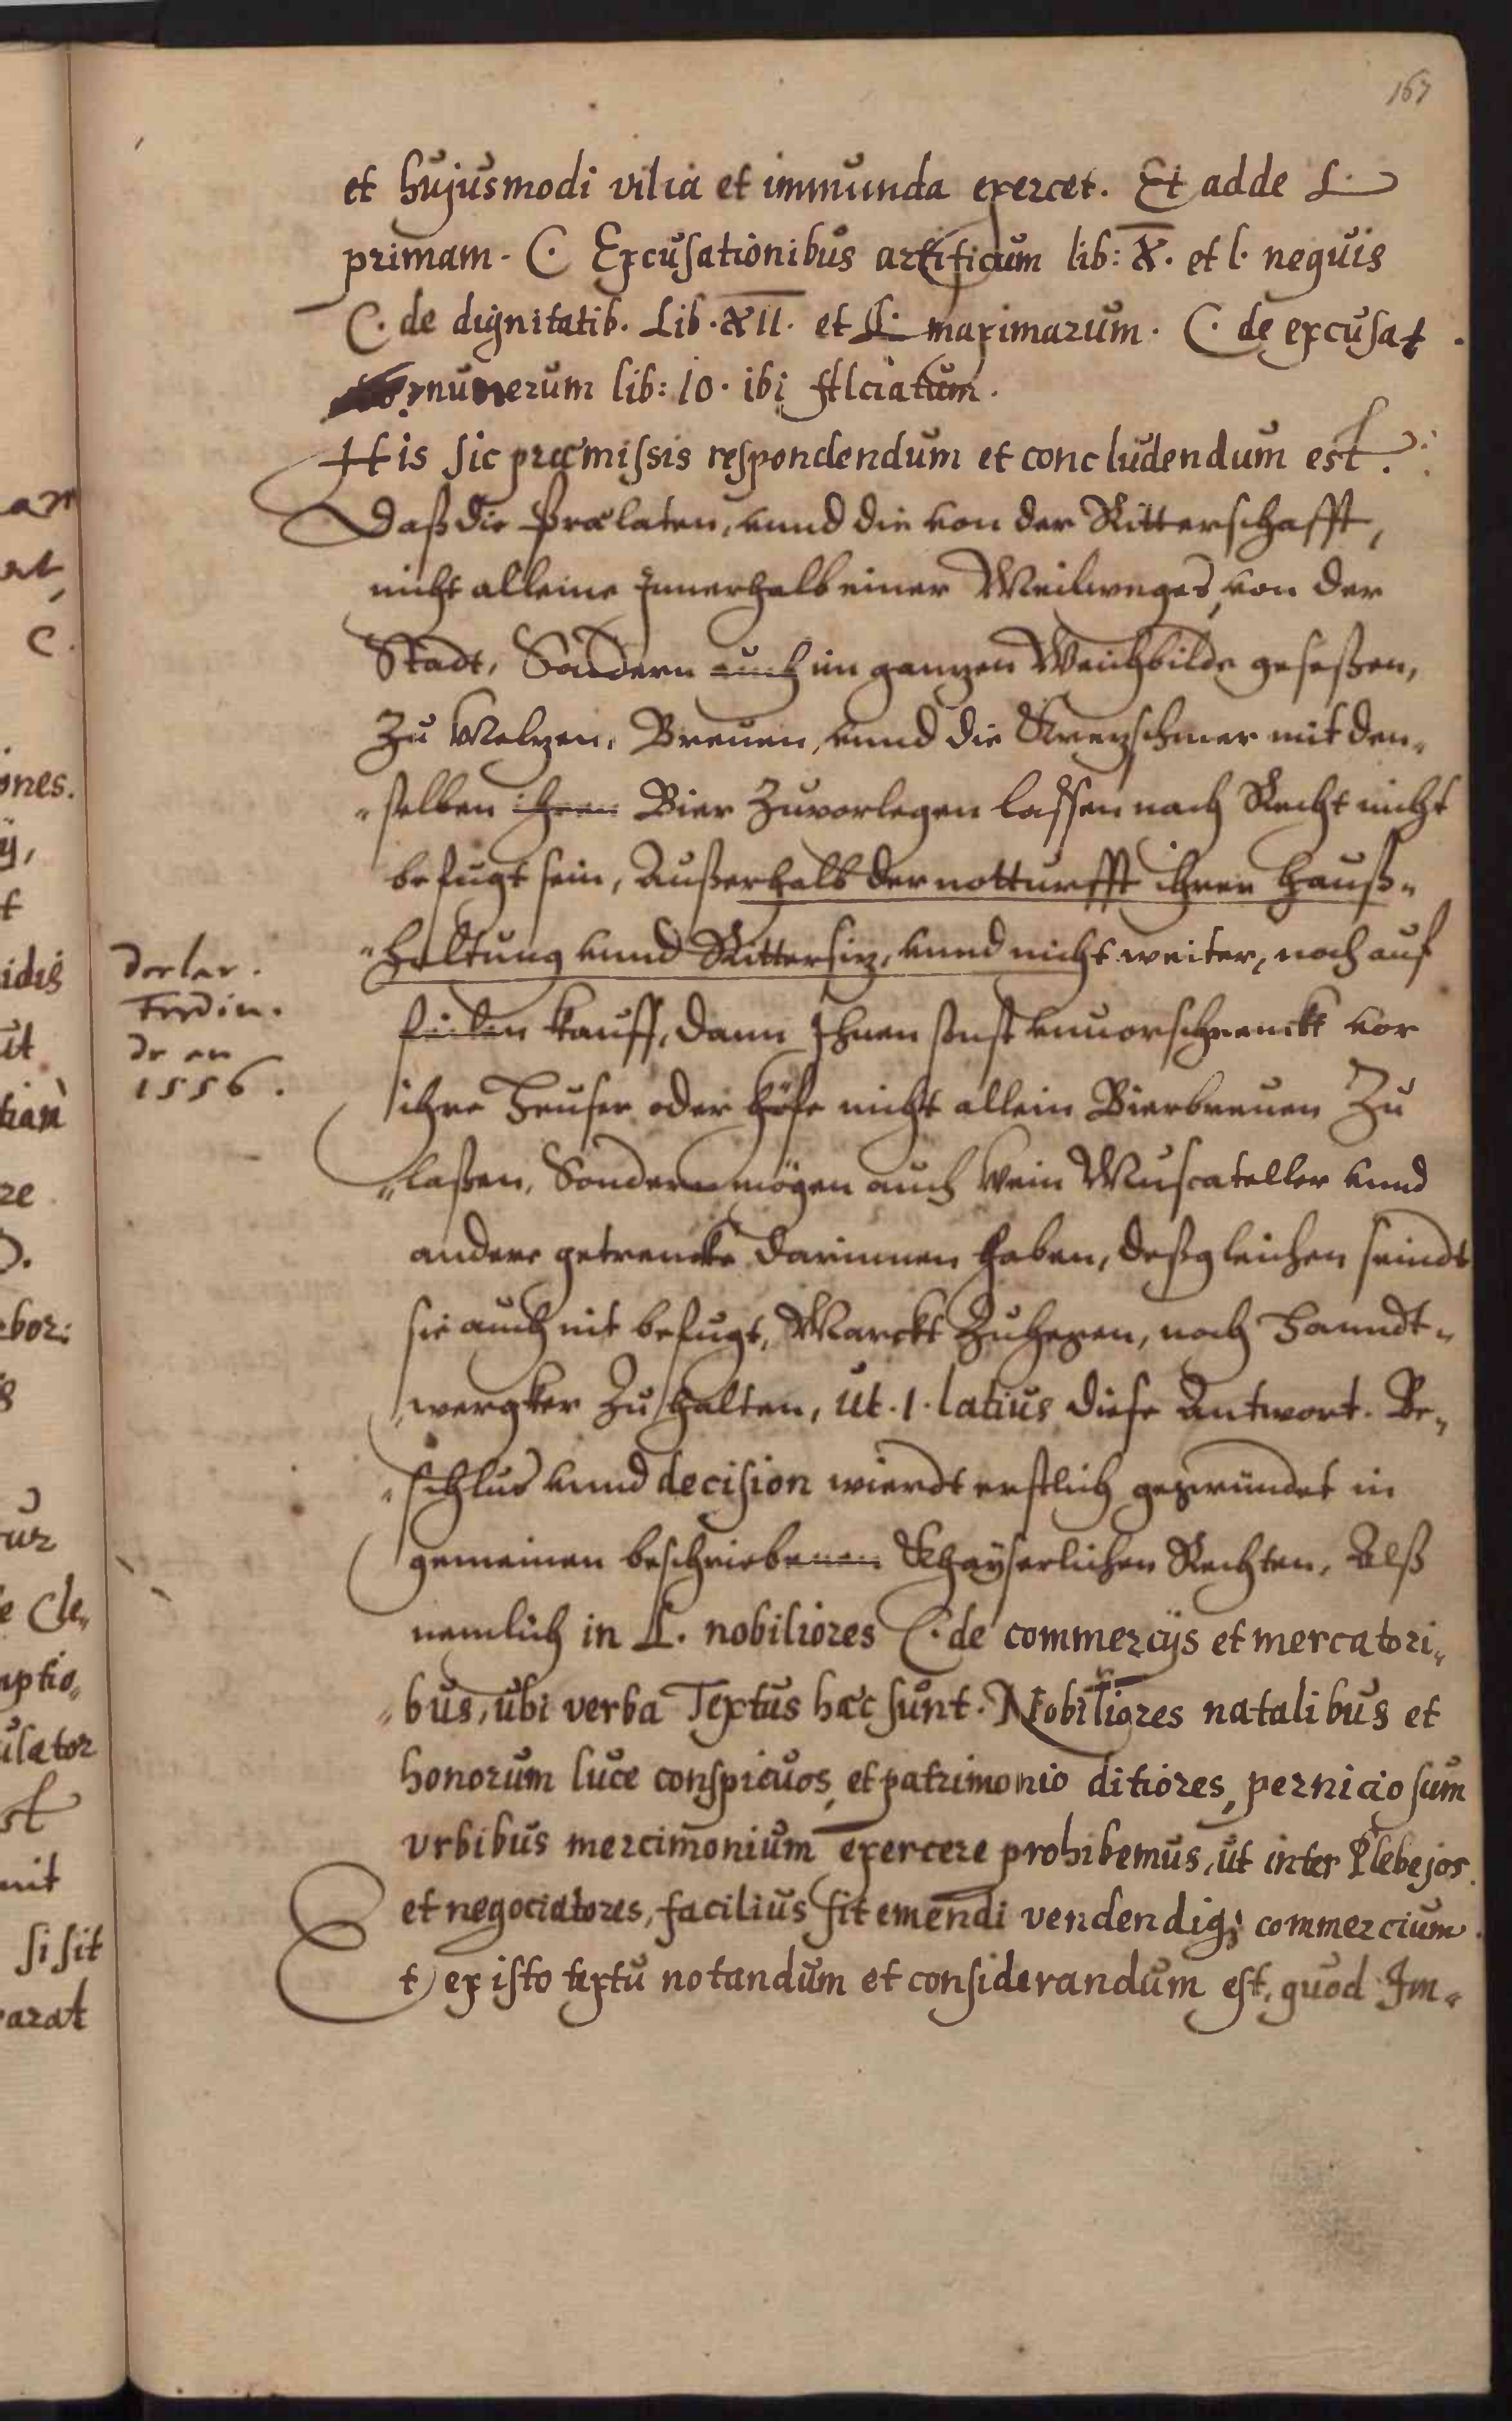 167
et hujusmodi vilia et immunda exercet. Et adde L.
primam. C. Excusationibus artificum lib: X. et l. nequis
C. de dignitatib. Lib. XII. et L. maximarum. C. de excusat.
munerum lib: 10. ibi Alciatum.
His sic præmissis respondendum et concludendum est.
Daß die Prælaten, vnnd die von der Ritterschafft,
nicht alleine Innerhalb einer Meilweges, von der
Stadt, Sondern auch im ganzen Weichbilde gesessen,
Zu Melzen, Breuen, vnnd die Krezschmer mit den„
„selben ihren Bier Zuvorlegen lassen nach Recht nicht
befugt sein, Außerhalb der notturfft ihrer Hauß„
„haltung vnnd Rittersiz, vnnd nicht weiter, noch auf
feilen kauff, dann Ihnen sonst vnuorschrenckt vor
ihre Heuser oder höfe nicht allein Bierbreuen Zu
„lassen, Sondern mögen auch Wein Muscateller vnnd
andere getrencke darinnen haben, deßgleichen seindt
sie auch nit befugt, Marckt Zuhegen, noch Handt„
„wergker Zuhalten, ut. l. latius diese Antwort. Be„
„schlus vnnd decision wierdt erstlich gegründet in
gemeinen beschriebenen Khayserlichen Rechten, Alß
nemlich in L. nobiliores C. de commercijs et mercatori„
„bus, ubi verba Textus hæc sunt. Nobiliores natalibus et
honorum luce conspicuos, et patrimonio ditiores, perniciosum
urbibus mercimonium exercere prohibemus, ut inter Plebejos
et negociatores, facilius sit emendi vendendiq; commercium.
Et ex isto textu notandum et considerandum est, quod Im„
declar.
Ferdin.
de an
1556.